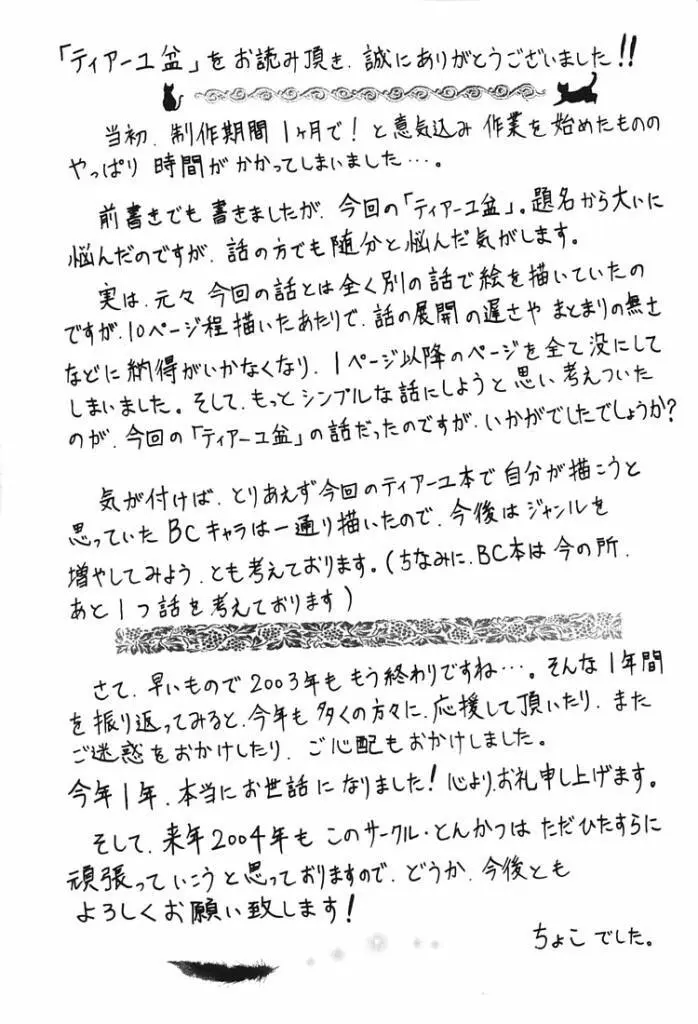 「ティアーユ盆」をお読み頂き、誠にありがとうございました!!
当初、制作期間1ヶ月で!と意気込み作業を始めたものの
やっぱり時間がかかってしまいました…。
前書きでも書きましたが、今回の「ティアーユ盆」。題名から大いに
悩んだのですが、話の方でも随分と悩んだ気がします。
実は、元々今回の話とは全く別の話で絵を描いていたの
ですが、10ページ程描いたあたりで、話の展開の遅さやまとまりの無さ
などに納得がいかなくなり、1ページ以降のページを全て没にして
しまいました。そして、もっとシンプルな話にしようと思い考えついた
のが、今回の「ティアーユ盆」の話だったのですが、いかがでしたでしょうか?
気が付けば、とりあえず今回のティアーユ本で自分が描こうと
思っていたBCキャラは一通り描いたので、今後はジャンルを
増やしてみよう、とも考えております。(ちなみに、BC本は今の所、
あと1つ話を考えております)
さて、早いもので2003年ももう終わりですね…。そんな1年間
を振り返ってみると、今年も多くの方々に、応援して頂いたり、また
ご迷惑をおかけしたり、ご心配もおかけしました。
今年1年、本当にお世話になりました!心より、お礼申し上げます。
そして、来年2004年もこのサークル・とんかつはただひたすらに
頑張っていこうと思っておりますので、どうか、今後とも
よろしくお願い致します!
ちょこでした。